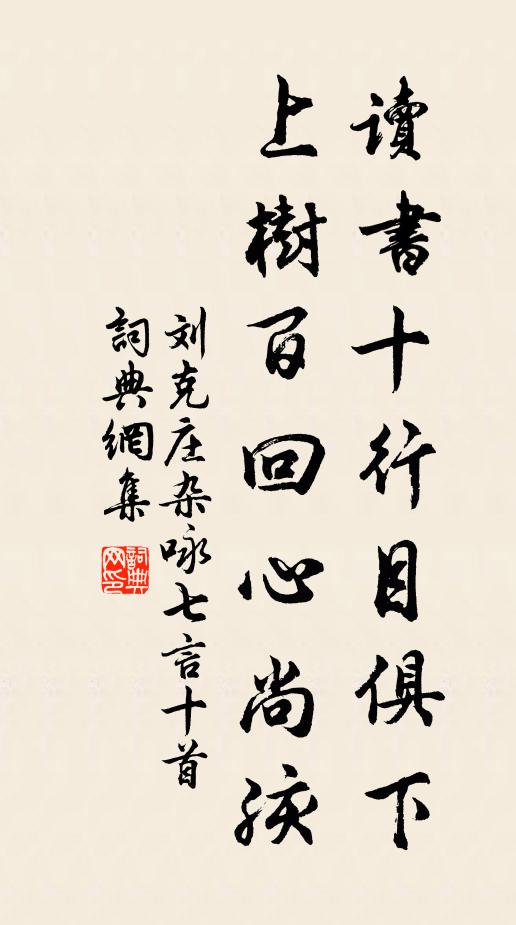 讀書十行目俱下
上樹百回心尚孩
刘克庄杂咏七言十首
詞典網集
詞典网印